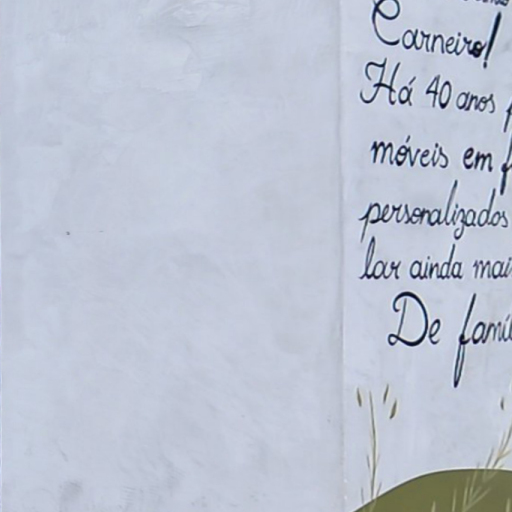 Carneiro!
Há 40 anos
móveis em
personalizados
lar ainda
De